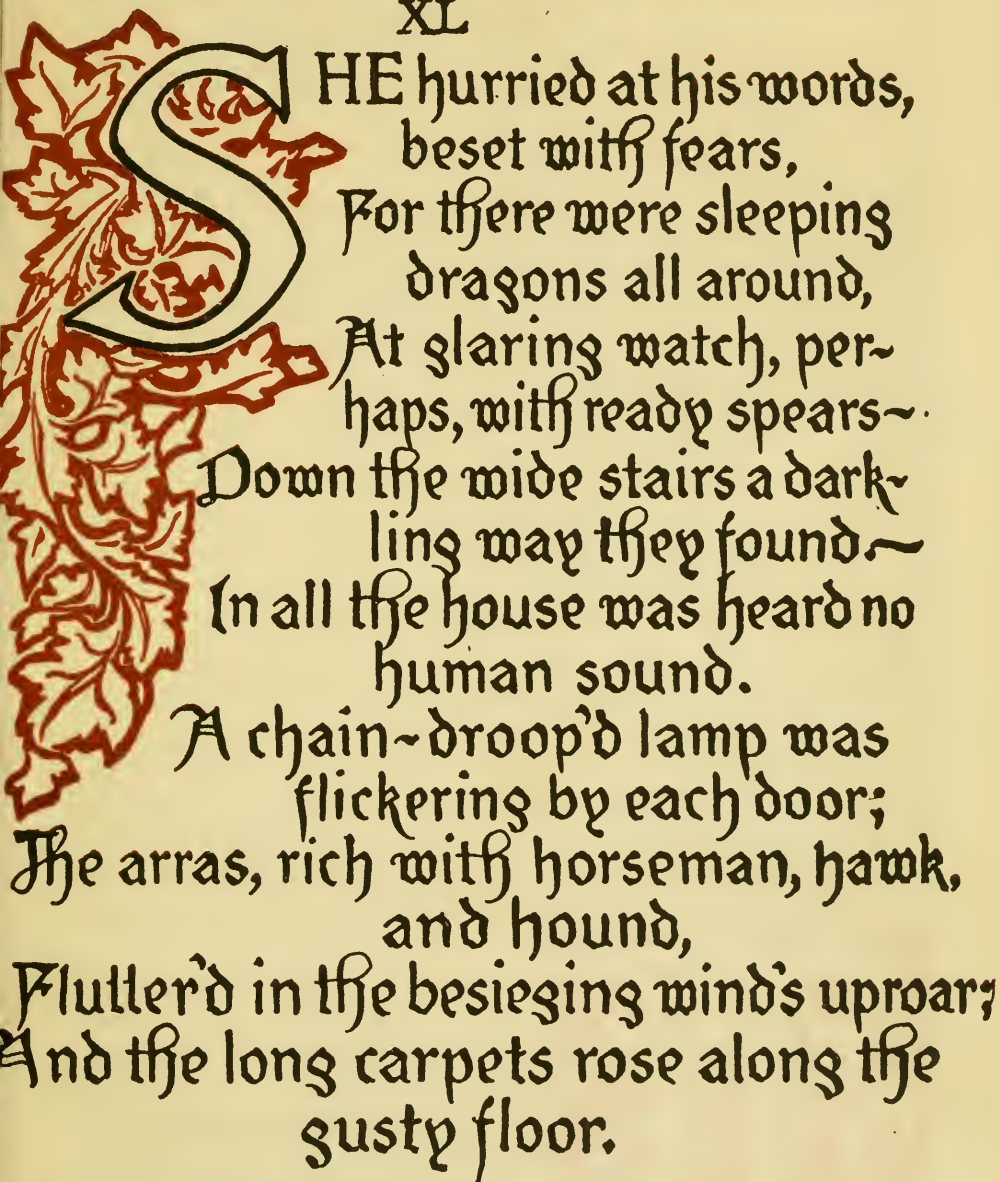 XL
SHE hurried at his words,
beset with fears,
For there were sleeping
dragons all around,
At glaring watch, per~
haps, with ready spears~
Down the wide stairs a dark~
ling way they found.~
In all the house was heard no
human sound.
A chain~droop'd lamp was
flickering by each door;
The arras, rich with horseman, hawk,
and hound,
Flutter'd in the besieging wind's uproar;
And the long carpets rose along the
gusty floor.